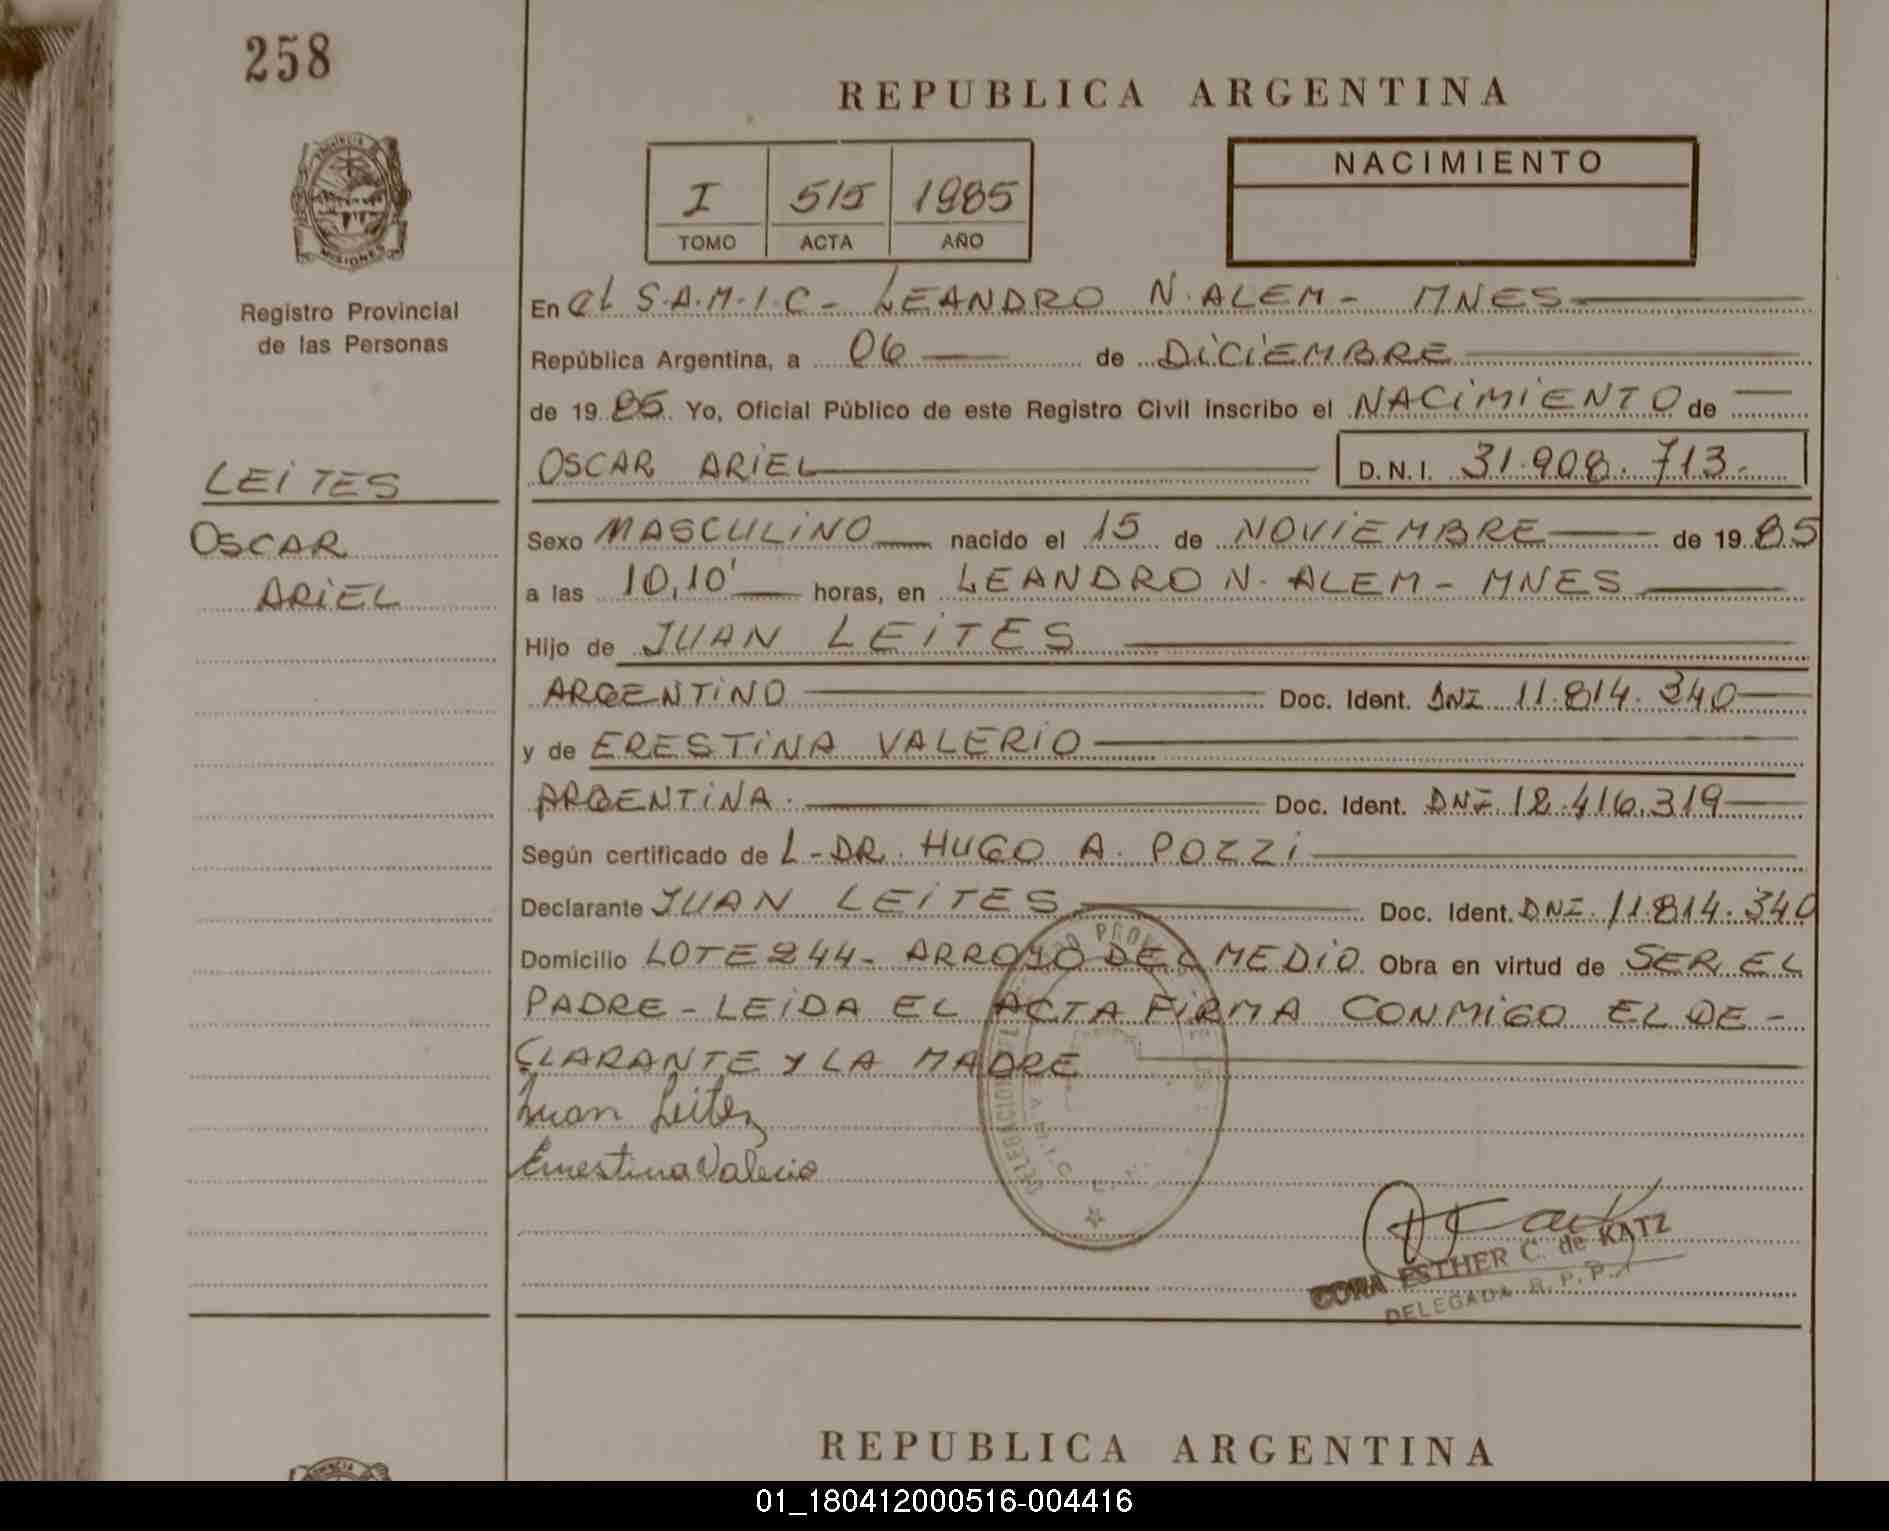 258
REPUBLICA ARGENTINA
I 515 1985
TOMO ACTA AÑO
NACIMIENTO
PROVINCIA DE
MISIONES
Registro Provincial
de las Personas
En el S.A.M.I.C - LEANDRO N. ALEM - MNES
República Argentina, a 06 de DICIEMBRE
de 1985 Yo, Oficial Público de este Registro Civil inscribo el NACIMIENTO de
OSCAR ARIEL D.N.I. 31.908.713.-
LEITES
OSCAR
ARIEL
Sexo MASCULINO nacido el 15 de NOVIEMBRE de 1985
a las 10,10' horas, en LEANDRO N. ALEM - MNES
Hijo de JUAN LEITES
ARGENTINO Doc. Ident. DNI 11.814.340
y de ERESTINA VALERIO
ARGENTINA. Doc. Ident. DNI. 12.416.319
Según certificado de L-DR. HUGO A. POZZI
Declarante JUAN LEITES Doc. Ident. DNI. 11.814.340
Domicilio LOTE 244- ARROYO DEL MEDIO Obra en virtud de SER EL
PADRE - LEIDA EL ACTA FIRMA CONMIGO EL DE -
CLARANTE Y LA MADRE
Juan Leites
Ernestina Valerio
DELEGACION
CORA ESTHER C. de KATZ
DELEGADA R.P.P.
REPUBLICA ARGENTINA
01_180412000516-004416